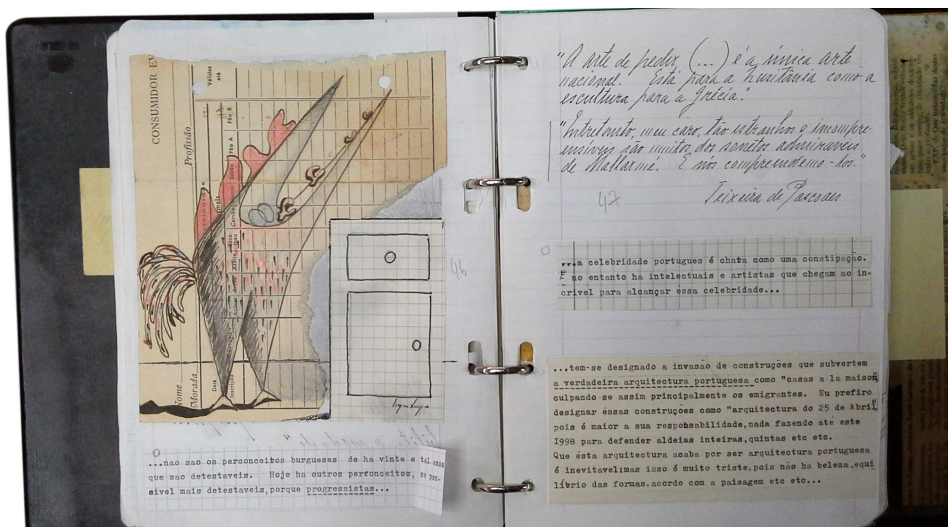 CONSUMIDOR
Profissão
Nome
Morada
46
...nao sao os perconceitos burgueses de ha vinte e tal anos
que sao detestaveis. Hoje ha outros perfonceitos, se pos-
sivel mais detestaveis,porque progressistas...
"A arte de pedra, (...) é a única arte
nacional. Está para a Lusitânia como a
escultura para a Grécia".
"Entretanto, meu caro, tão estranhos e incompre-
ensíveis são muitos dos sonetos admiráveis
de Mallarmé. E nós compreendemo-los."
Teixeira de Pascoaes
47
...a celebridade portugues é chata como uma constipação.
no entanto ha intelectuais e artistas que chegam ao in-
crivel para alcançar essa celebridade...
...tem-se designado a invasão de construções que subvertem
a verdadeira arquitectura portuguesa como "casas a la maison",
culpando-se assim principalmente os emigrantes. Eu prefiro
designar essas construções como "arquitectura do 25 de Abril",
pois é maior a sua responsabilidade,nada fazendo ate este
I998 para defender aldeias inteiras,quintas etc etc.
Que ésta arquitectura acaba por ser arquitectura portuguesa
é inevitavel;mas isso é muito triste,pois não ha beleza,equi
líbrio das formas,acordo com a paisagem etc etc...